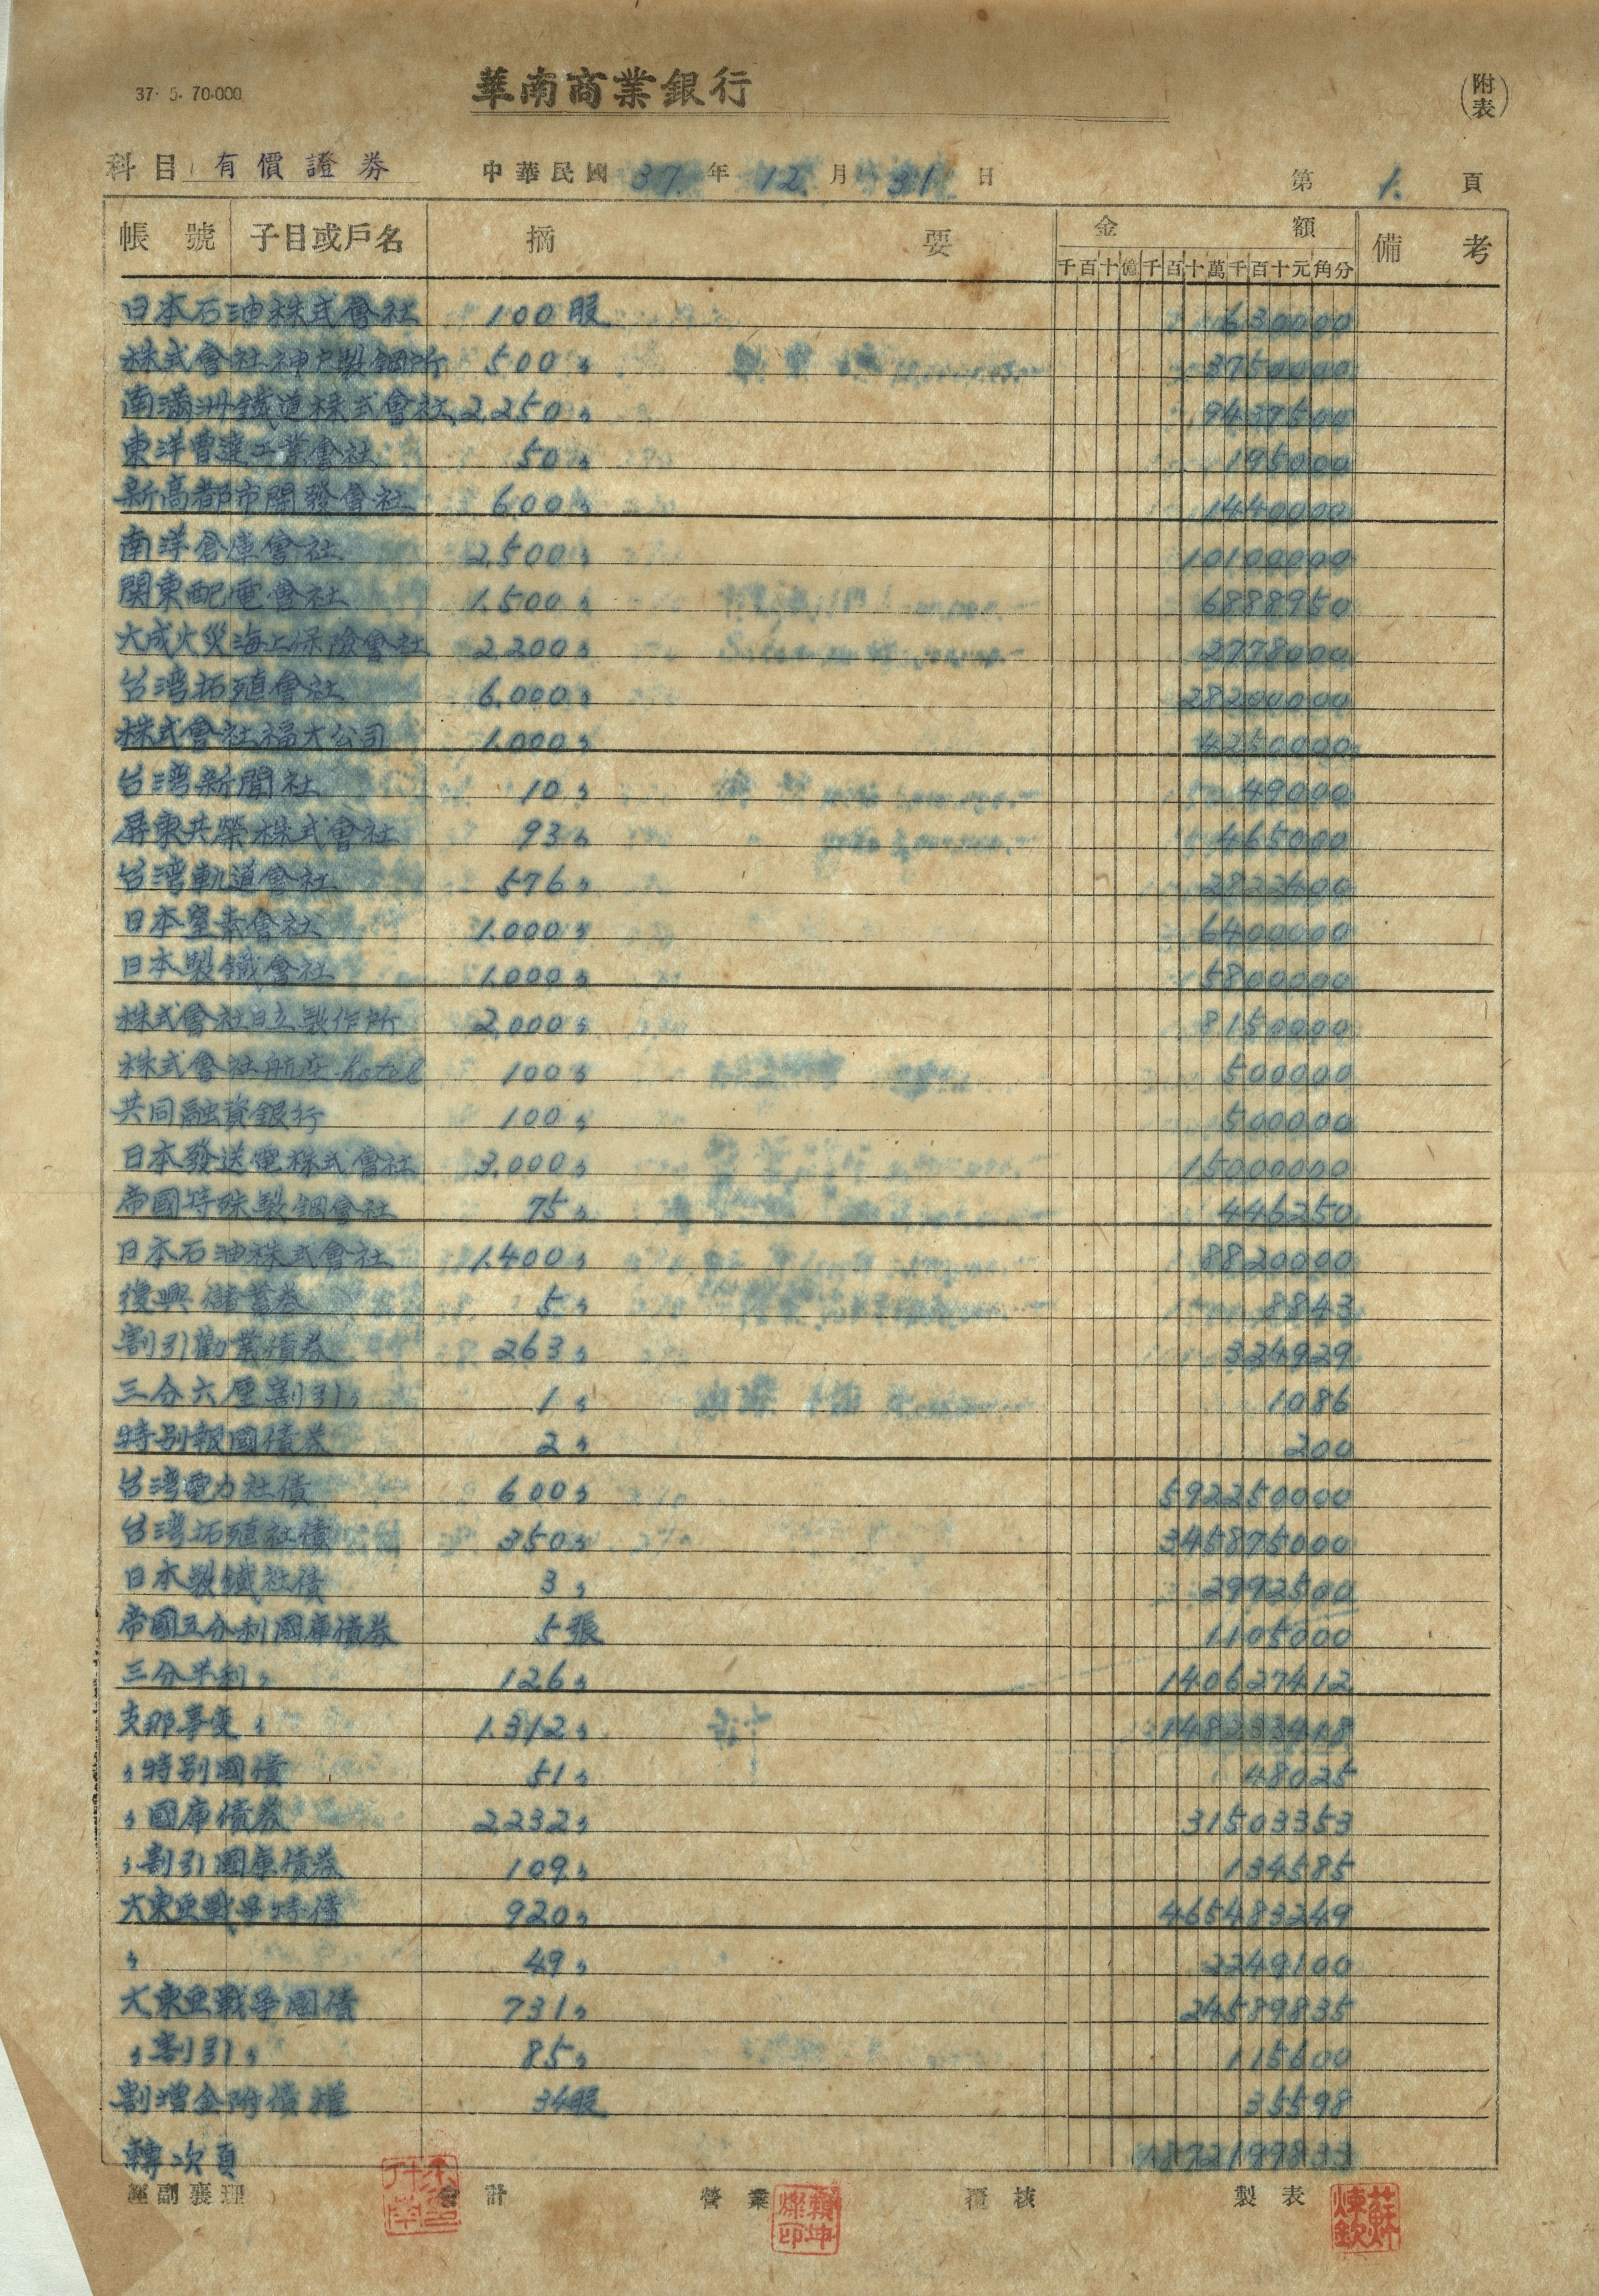 37. 5. 70.000
華南商業銀行
(附表)
科目 有價證券 中華民國 37. 年 12. 月 31 日 第 1. 頁
帳號 子目或戶名 摘要 金額 備考
千百十億千百十萬千百十元角分
日本石油株式會社 100股 630000
株式會社神戶製鋼所 500〃 3750000
南滿洲鐵道株式會社 2,250〃 9437500
東洋曹達工業會社 50〃 195000
新高都市開發會社 600〃 1440000
南洋倉庫會社 2,500〃 10100000
関東配電會社 1,500〃 6888950
大成火災海上保險會社 2,200〃 2778000
台湾拓殖會社 6,000〃 28200000
株式會社福大公司 1,000〃 4250000
台湾新聞社 10〃 49000
屏東共榮株式會社 93〃 465000
台湾軌道會社 576〃 2822400
日本窒素會社 1,000〃 6400000
日本製鐵會社 1,000〃 5800000
株式會社日立製作所 2,000〃 8150000
株式會社航空hotel 100〃 500000
共同融資銀行 100〃 500000
日本發送電株式會社 3,000〃 15000000
帝國特殊製鋼會社 75〃 446250
日本石油株式會社 1,400〃 8820000
復興儲蓄券 5〃 8843
割引勸業債券 263〃 324929
三分六厘割引〃 1〃 1086
特別報國債券 2〃 200
台湾電力社債 600〃 592250000
台湾拓殖社債 350〃 345875000
日本製鐵社債 3〃 2992500
帝國五分利國庫債券 5張 1105000
三分半利〃 126〃 140627412
支那事変〃 1,312〃 148233418
〃特別國債 51〃 48025
〃國庫債券 2,232〃 31503353
〃割引國庫債券 109〃 134585
大東亜戰爭特債 920〃 465483249
〃 49〃 2249100
大東亜戰爭國債 731〃 24589835
〃割引〃 85〃 115600
割增金附債權 34股 35598
轉次頁 1872199833
經副襄理 會計 營業 覆核 製表
賴坤燦印
蘇煉欽